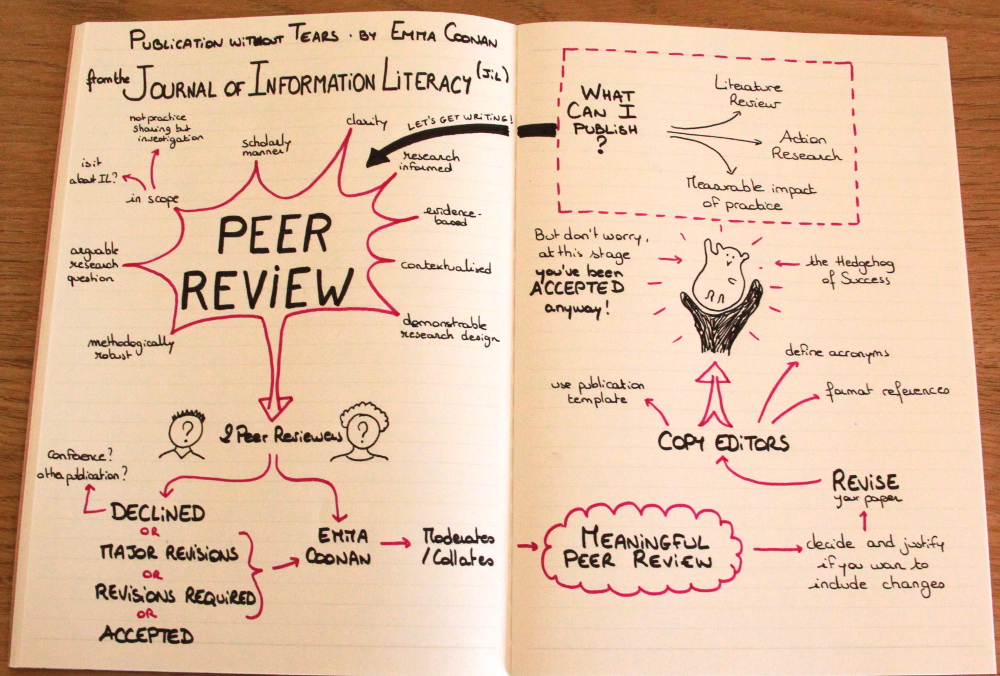 PUBLICATION WITHOUT TEARS · BY EMMA COONAN
from the JOURNAL OF INFORMATION LITERACY (JiL)
LET'S GET WRITING!
clarity
not practice
sharing but
investigation
scholarly
manner
research
informed
is it
about IL?
in scope
evidence-
based
PEER
REVIEW
arguable
research
question
contextualised
methodologically
robust
demonstrable
research design
?
2 Peer Reviewers
?
Conference?
other publication?
DECLINED
OR
MAJOR REVISIONS
OR
REVISIONS REQUIRED
OR
ACCEPTED
EMMA
COONAN
Moderates
/Collates
WHAT
CAN I
PUBLISH
?
Literature
Review
Action
Research
Measurable impact
of practice
But don't worry,
at this stage
you've been
ACCEPTED
anyway!
the Hedgehog
of Success
define acronyms
use publication
template
format references
COPY EDITORS
REVISE
your paper
MEANINGFUL
PEER REVIEW
decide and justify
if you want to
include changes